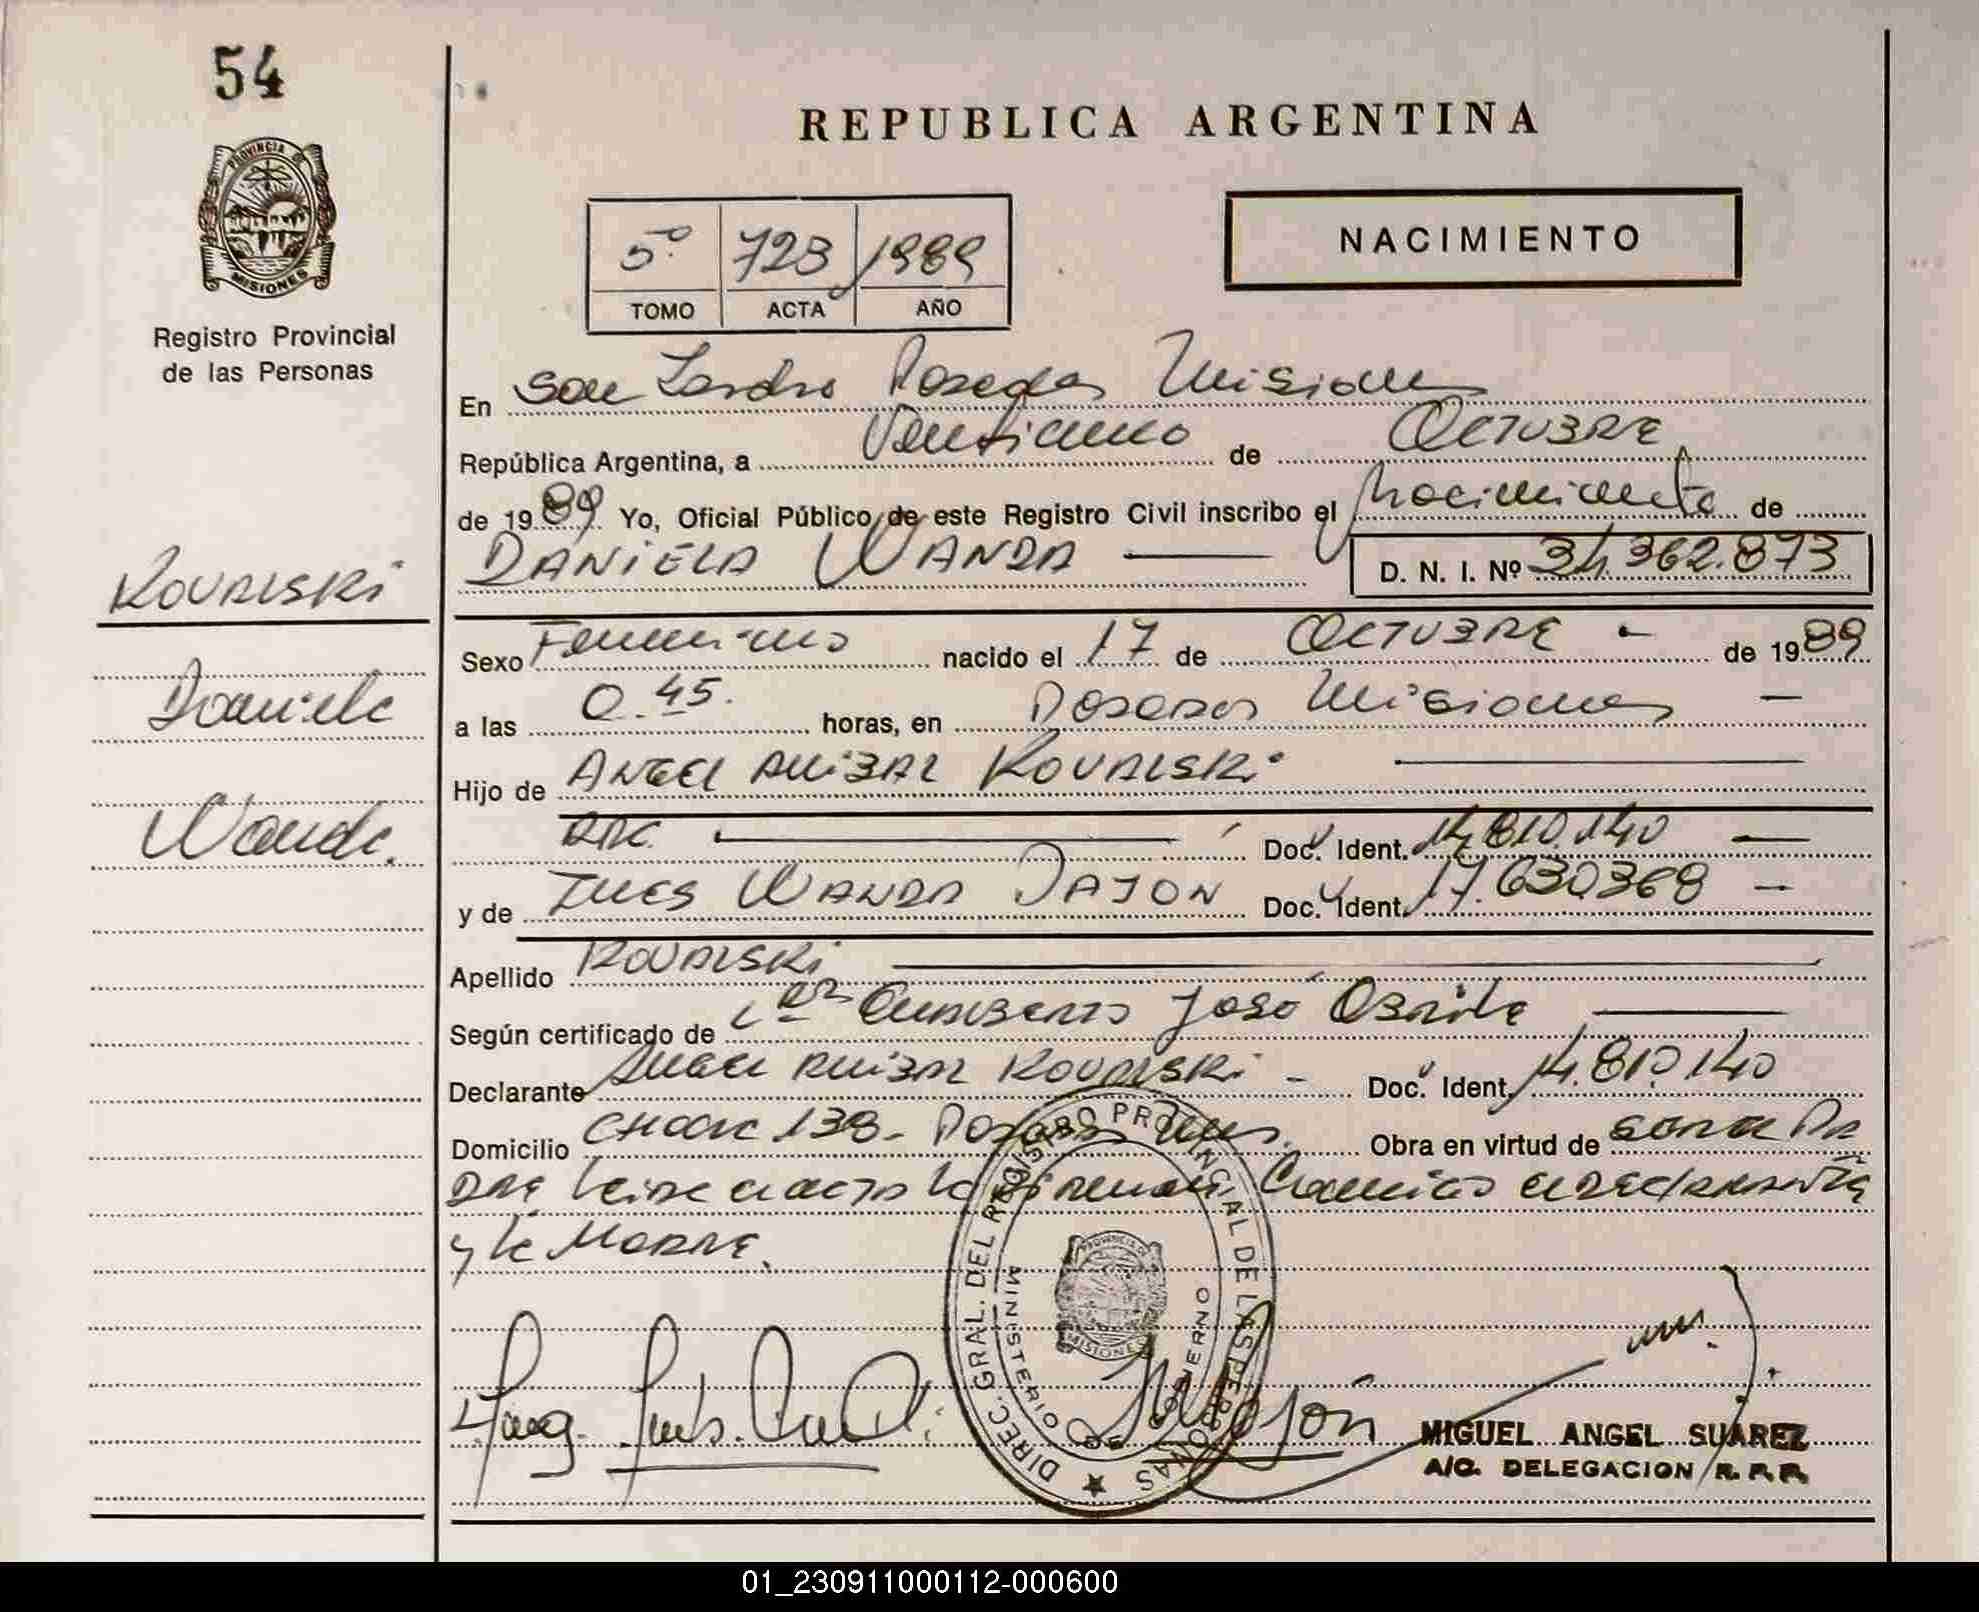 54
REPUBLICA ARGENTINA
PROVINCIA DE
MISIONES
Registro Provincial
de las Personas
5º 723 1989
TOMO ACTA AÑO
NACIMIENTO
En San Isidro Posadas Misiones
República Argentina, a Veintiuno de OCTUBRE
de 1989 Yo, Oficial Público de este Registro Civil inscribo el Nacimiento de
DANIELA WANDA D. N. I. Nº 34.362.873
KOVALSKI
Daniela
Wanda.
Sexo Femenino nacido el 17 de OCTUBRE de 1989
a las 0.45. horas, en Posadas Misiones
Hijo de ANGEL ANIBAL KOVALSKI
Doc. Ident. 14.810.140
y de INES WANDA Doc. Ident. 17.630.368
Apellido KOVALSKI
Según certificado de José
Declarante Angel ANIBAL KOVALSKI Doc. Ident. 14.810.140
Domicilio 138 - Posadas Mnes. Obra en virtud de
DRE Leida el acta la firman el DECLARANTE
y la MADRE.
DIREC. GRAL. DEL REGISTRO PROVINCIAL DE LAS PERSONAS
MINISTERIO DE GOBIERNO
PROVINCIA DE
MISIONES
MIGUEL ANGEL SUAREZ
A/C. DELEGACION R. P. P.
01_230911000112-000600